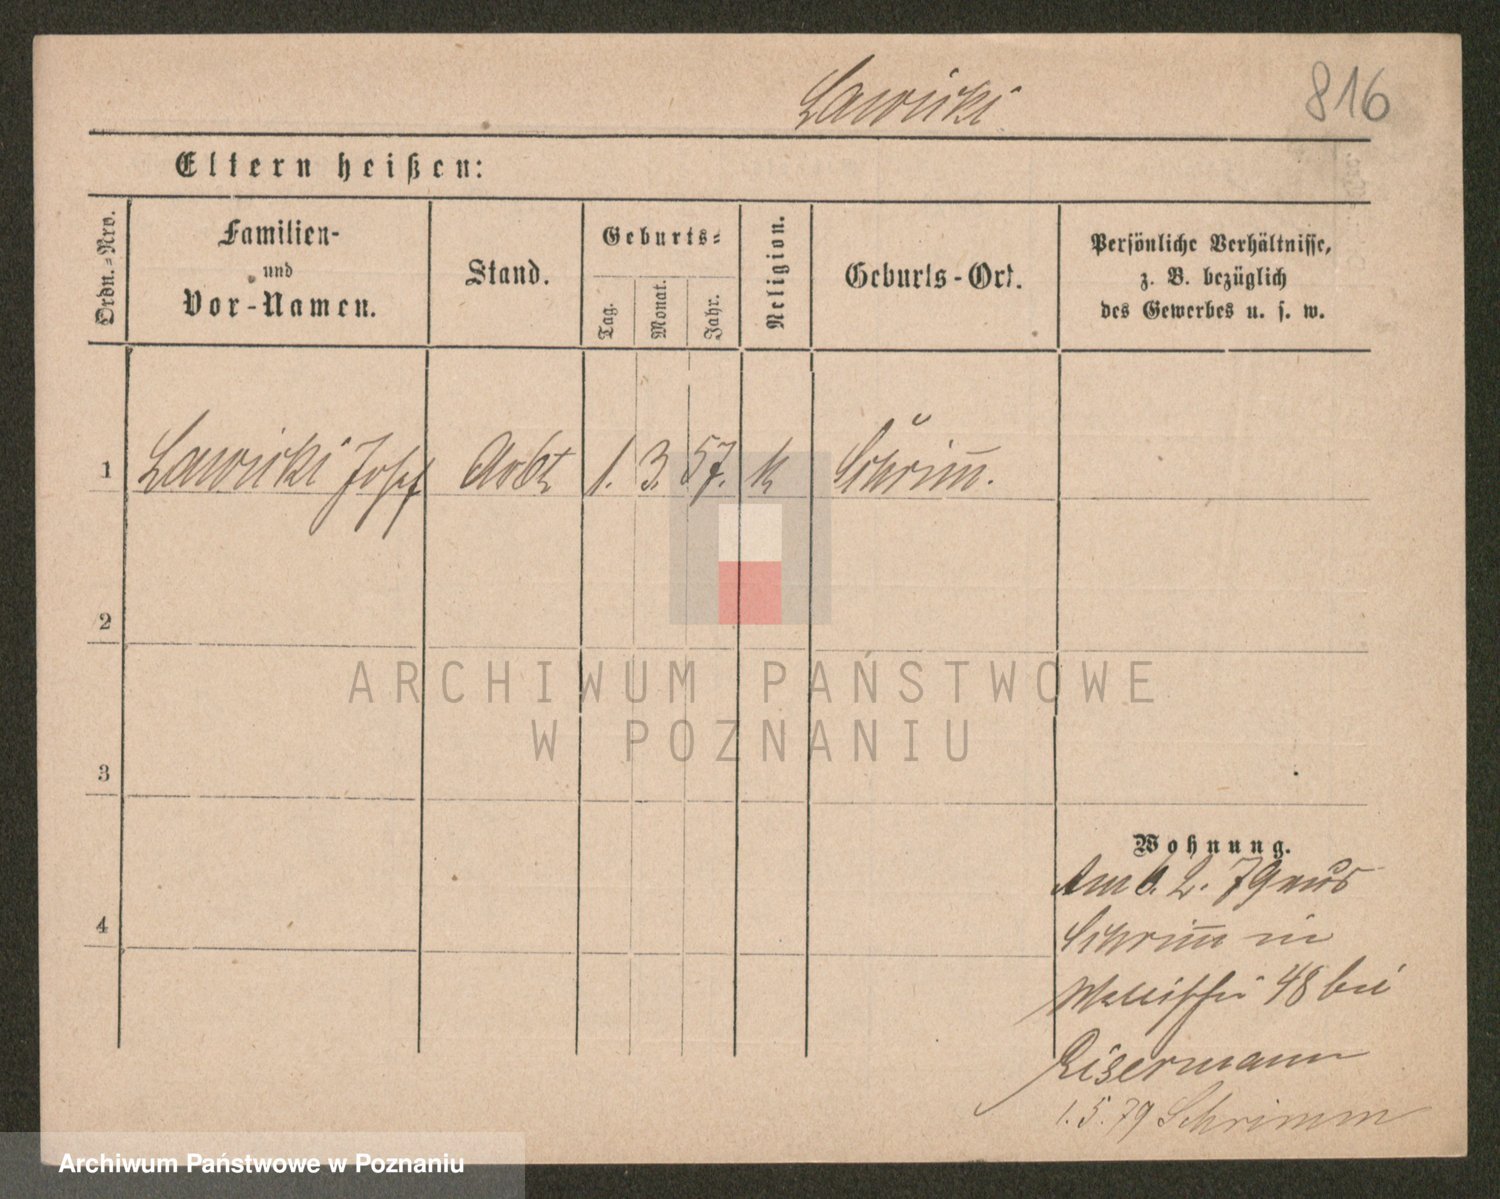 Lawicki
816
Eltern heißen:
Ordn.-Nro.
Familien-
und
Vor-Namen.
Stand.
Geburts-
Tag.
Monat.
Jahr.
Religion.
Geburts-Ort.
Persönliche Verhältnisse,
z. B. bezüglich
des Gewerbes u. s. w.
1 Lawicki Josef Arbt 1. 3. 57. k Schrim̄.
2
3
4
Wohnung.
Am 6. 2. 79 aus
Schrim̄ in
48 bei
1. 5. 79 Schrimm
ARCHIWUM PAŃSTWOWE
W POZNANIU
Archiwum Państwowe w Poznaniu